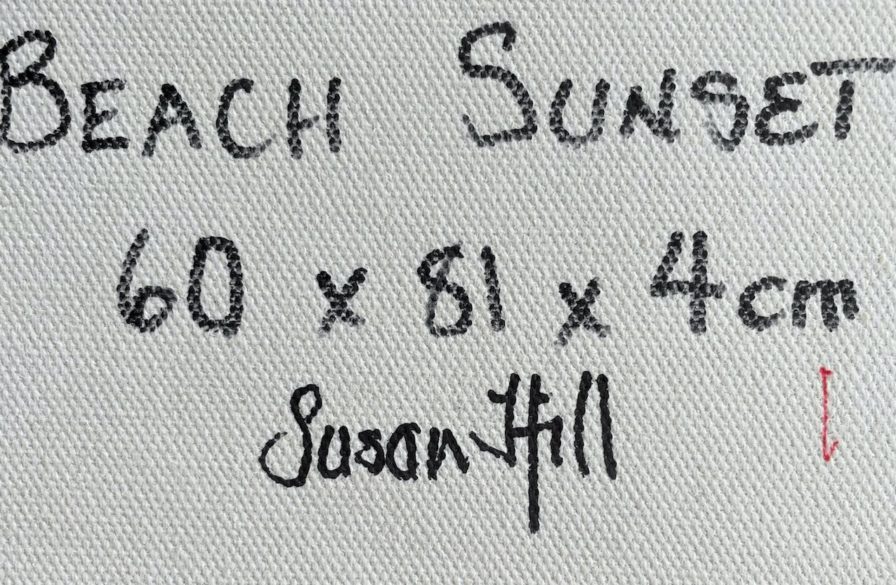 BEACH SUNSET
60 x 81 x 4cm
Susan Hill